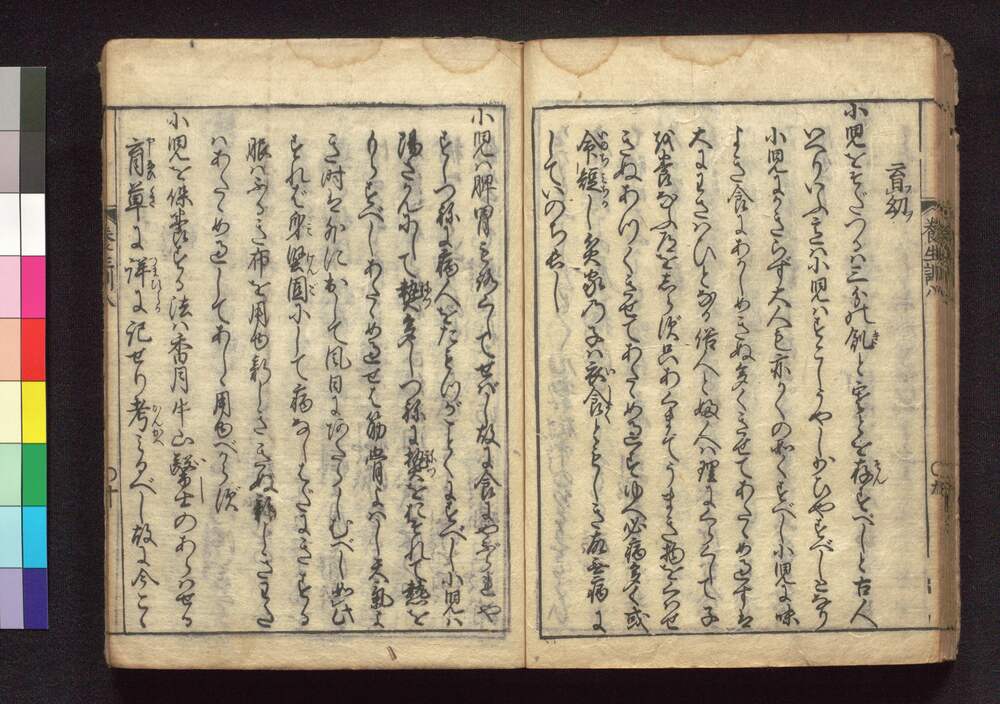 育幼
小児をそだつるは三分の飢と寒とを存すべしと古人
いへりいふ意は小児はすこしうやし少ひやすべしとなり
小児にかぎらず大人も亦かくの如くすべし小児に味
よき食にあかしめきぬ多くきせてあたゝめ過すは
大にわざはひとなる俗人と婦人は理にくらくして子
を養ふ道をしらず只あくまでうまき物をくはせ
きぬあつくきせてあたゝめ過すゆへ必病多く或
命短し貧家の子は衣食ともしき故無病に
していのち長し
小児は脾胃もろくしてせばし故に食にやぶられや
すしつねに病人をたもつごとくにすべし小児は
陽さかんにして熱多しつねに熱をおそれて熱を
もらすべしあたゝめ過せば筋骨よはし天氣よ
き時は外に出して風日にあたらしむべし如此
すれば身堅固にして病なしはだにきする
服はふるき布を用ゆ新しききぬ新しきわた
はあたゝめ過してあしゝ用ゆべからず
小児を保養する法は香月牛山醫士のあらはせる
育草に詳に記せり考みるべし故に今こゝ
養生訓八